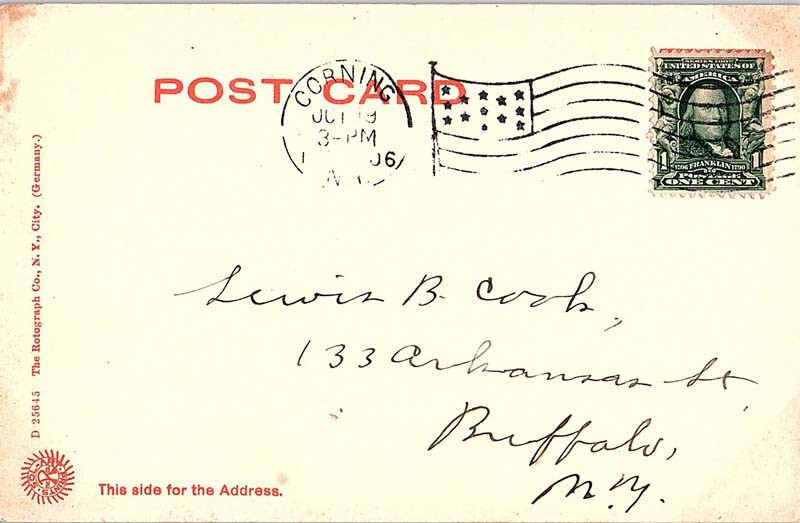 POST CARD
CORNING
OCT 19
3-PM
06
N.Y.
SERIES 1902
UNITED STATES OF
AMERICA
1 1706 FRANKLIN 1790 1
POSTAGE
ONE CENT
Lewis B. Cook,
133 Arkansas St
Buffalo,
N.Y.
D 25645 The Rotograph Co., N. Y., City. (Germany.)
SOL-ART PRINTS
This side for the Address.